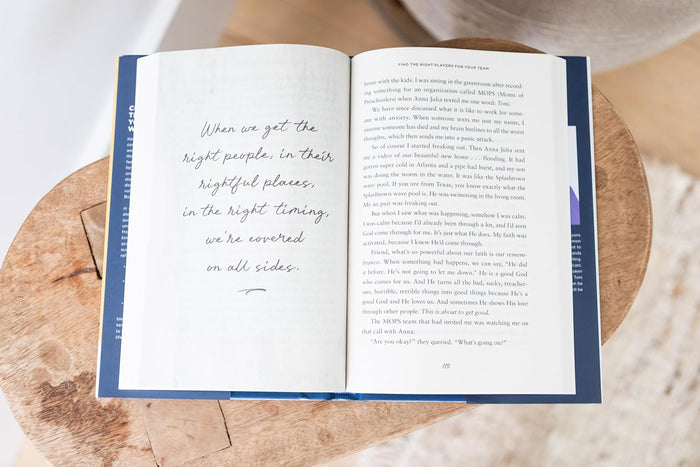 When we get the
right people, in their
rightful places,
in the right timing,
we're covered
on all sides.
FIND THE RIGHT PLAYERS FOR YOUR TEAM
home with the kids. I was sitting in the greenroom after record-
ing something for an organization called MOPS (Moms of
Preschoolers) when Anna Julia texted me one word: Toni.
We have since discussed what it is like to work for some-
one with anxiety. When someone texts me just my name, I
assume someone has died and my brain beelines to all the worst
thoughts, which then sends me into a panic attack.
So of course I started freaking out. Then Anna Julia sent
me a video of our beautiful new home . . . flooding. It had
gotten super cold in Atlanta and a pipe had burst, and my son
was doing the worm in the water. It was like the Splashtown
wave pool. If you are from Texas, you know exactly what the
Splashtown wave pool is. He was swimming in the living room.
My au pair was freaking out.
But when I saw what was happening, somehow I was calm.
I was calm because I'd already been through a lot, and I'd seen
God come through for me. It's just what He does. My faith was
activated, because I knew He'd come through.
Friend, what's so powerful about our faith is our remem-
brance. When something bad happens, we can say, "He did
it before. He's not going to let me down." He is a good God
who comes for us. And He turns all the bad, sucky, treacher-
ous, horrible, terrible things into good things because He's a
good God and He loves us. And sometimes He shows His love
through other people. This is about to get good.
The MOPS team that had invited me was watching me on
that call with Anna.
"Are you okay?" they queried. "What's going on?"